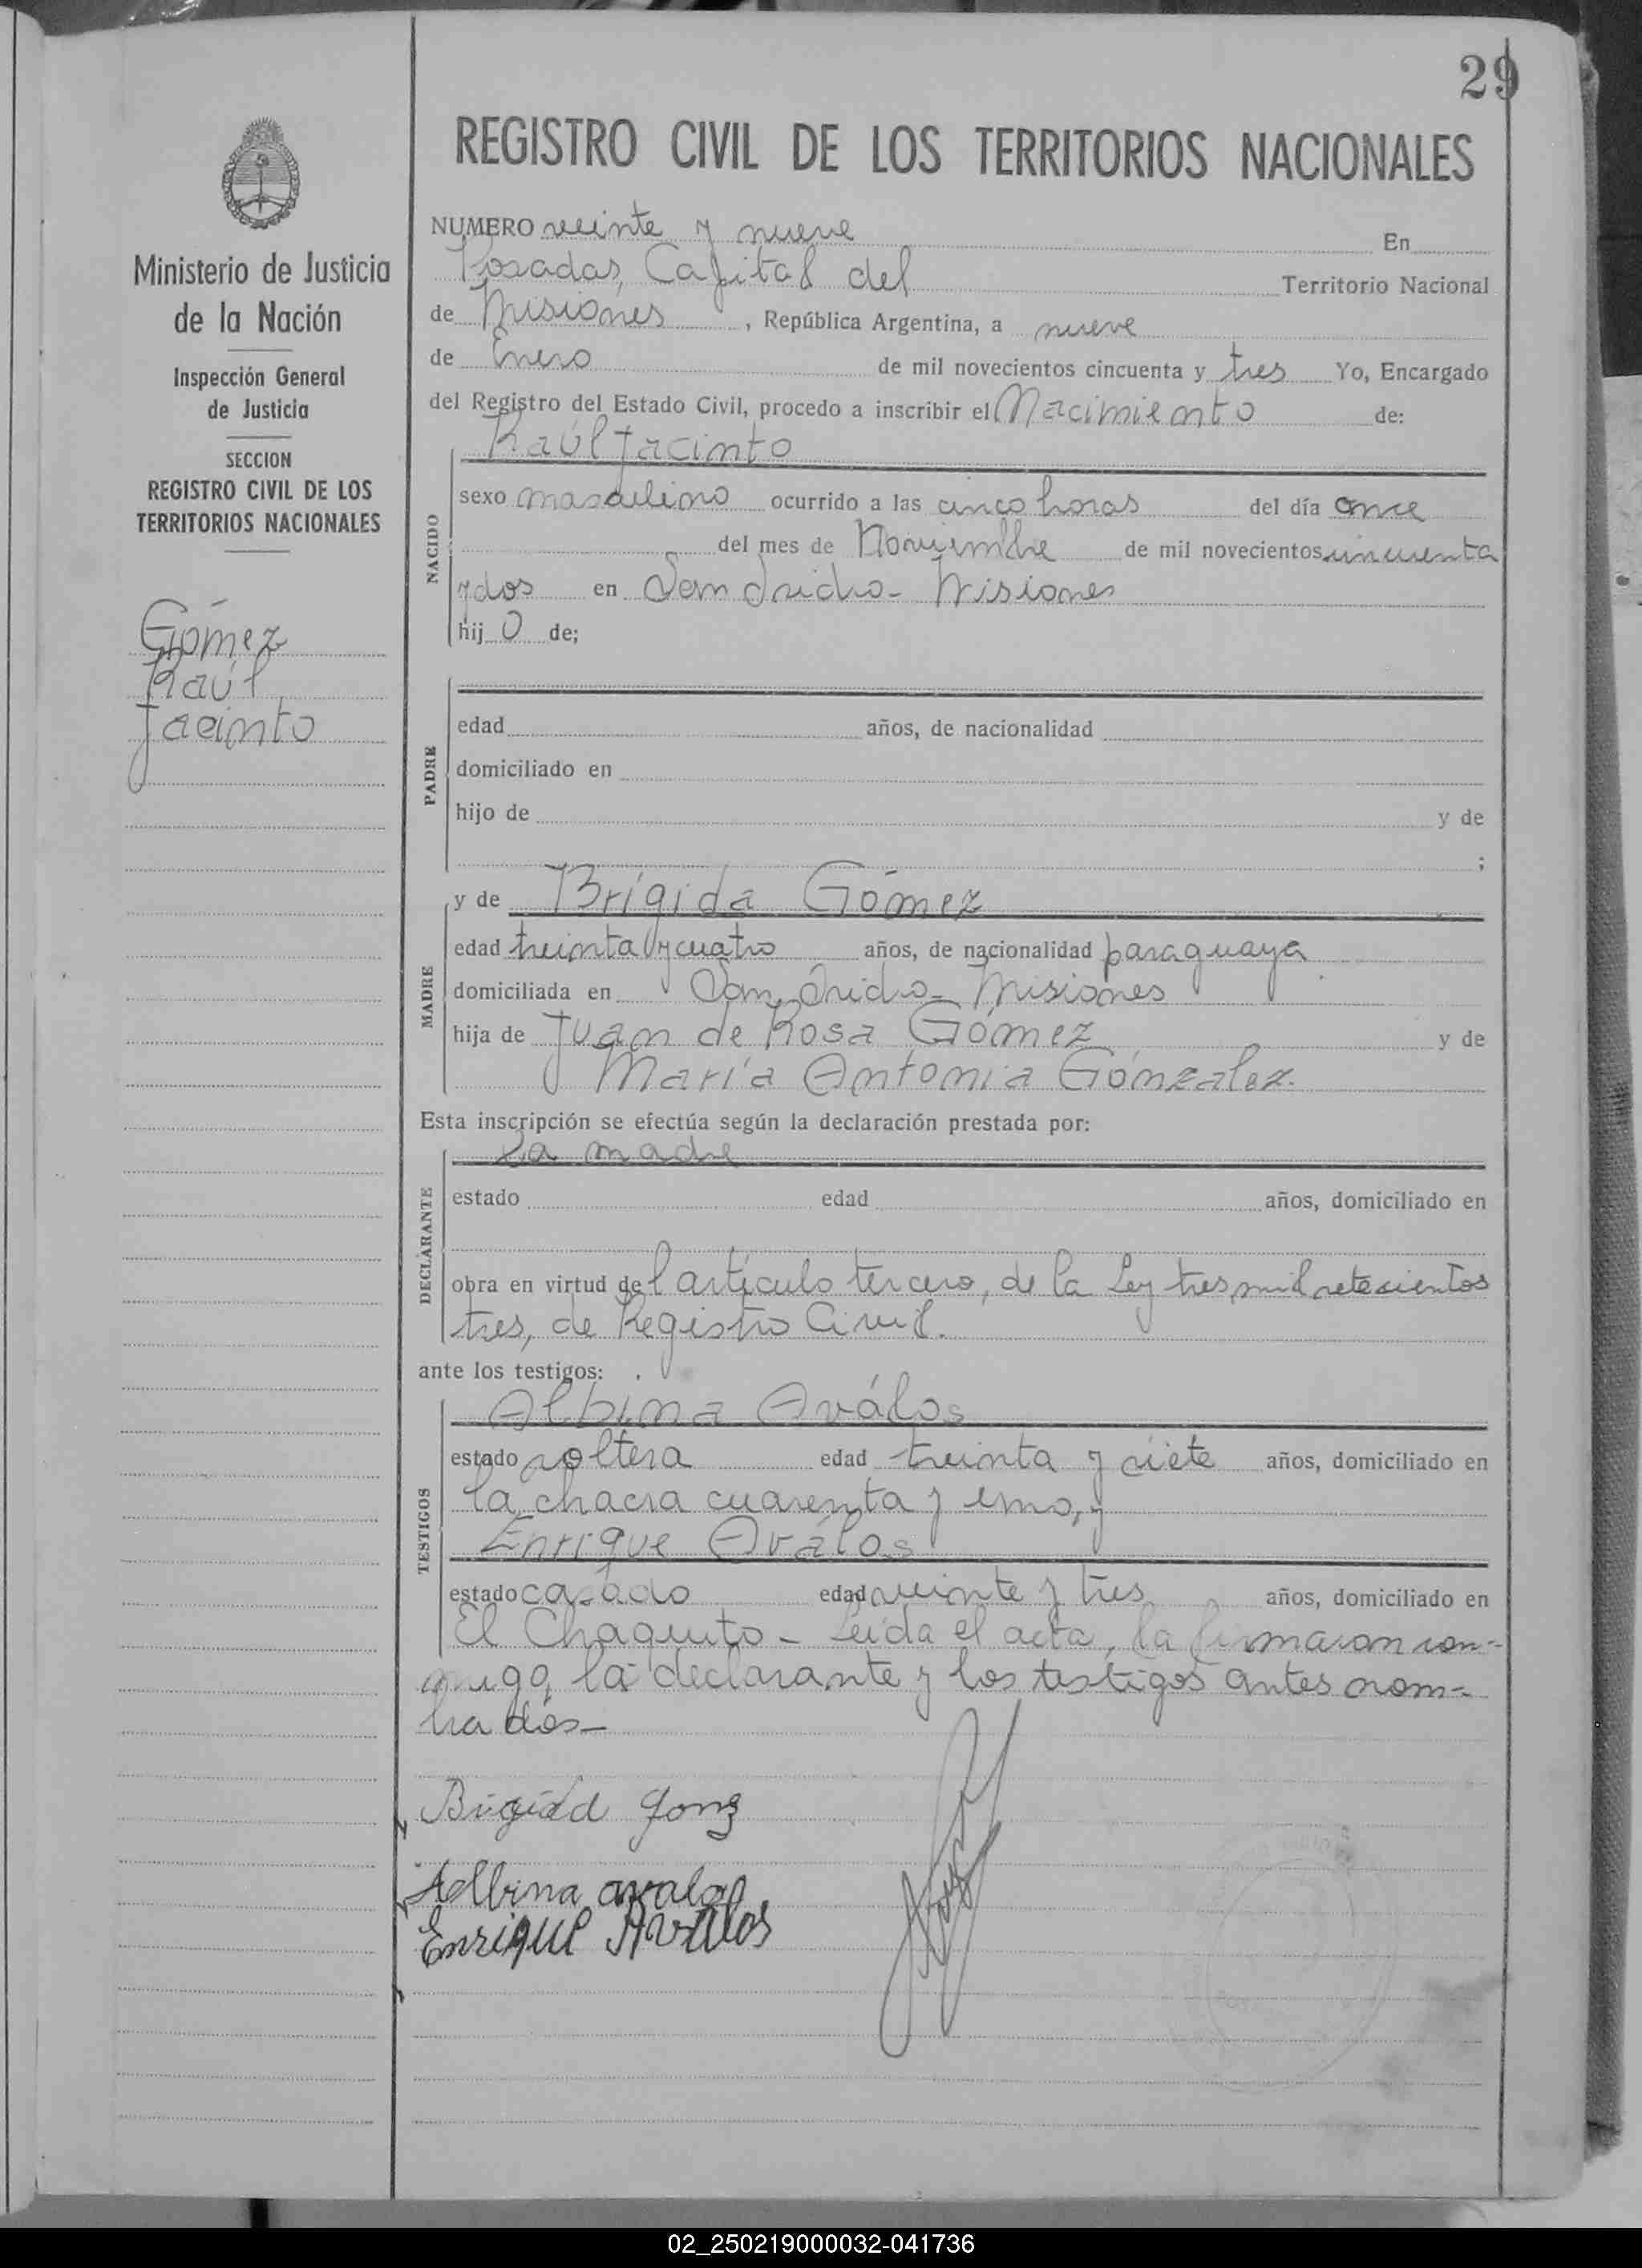 29
REGISTRO CIVIL DE LOS TERRITORIOS NACIONALES
Ministerio de Justicia
de la Nación
Inspección General
de Justicia
SECCION
REGISTRO CIVIL DE LOS
TERRITORIOS NACIONALES
Gómez
Raúl
Jacinto
NUMERO veinte y nueve En
Posadas, Capital del Territorio Nacional
de Misiones, República Argentina, a nueve
de Enero de mil novecientos cincuenta y tres Yo, Encargado
del Registro del Estado Civil, procedo a inscribir el Nacimiento de:
Raúl Jacinto
NACIDO
sexo masculino ocurrido a las cinco horas del día once
del mes de Noviembre de mil novecientos cincuenta
y dos en San Isidro - Misiones
hij o de;
PADRE
edad años, de nacionalidad
domiciliado en
hijo de y de
;
MADRE
y de Brígida Gómez
edad treinta y cuatro años, de nacionalidad paraguaya
domiciliada en San Isidro - Misiones
hija de Juan de Rosa Gómez y de
María Antonia Gónzalez.
Esta inscripción se efectúa según la declaración prestada por:
La madre
DECLARANTE
estado edad años, domiciliado en
obra en virtud del artículo tercero, de la Ley tres mil setecientos
tres, de Registro Civil.
ante los testigos:
TESTIGOS
Albina Aválos
estado soltera edad treinta y siete años, domiciliado en
la chacra cuarenta y uno, y
Enrique Aválos
estado casado edad veinte y tres años, domiciliado en
El Chaquito - Leída el acta, la firmaron con-
migo, la declarante y los testigos antes nom-
brados -
Brigid Gomz
Adlbina avalos
Enrique Avalos
02_250219000032-041736